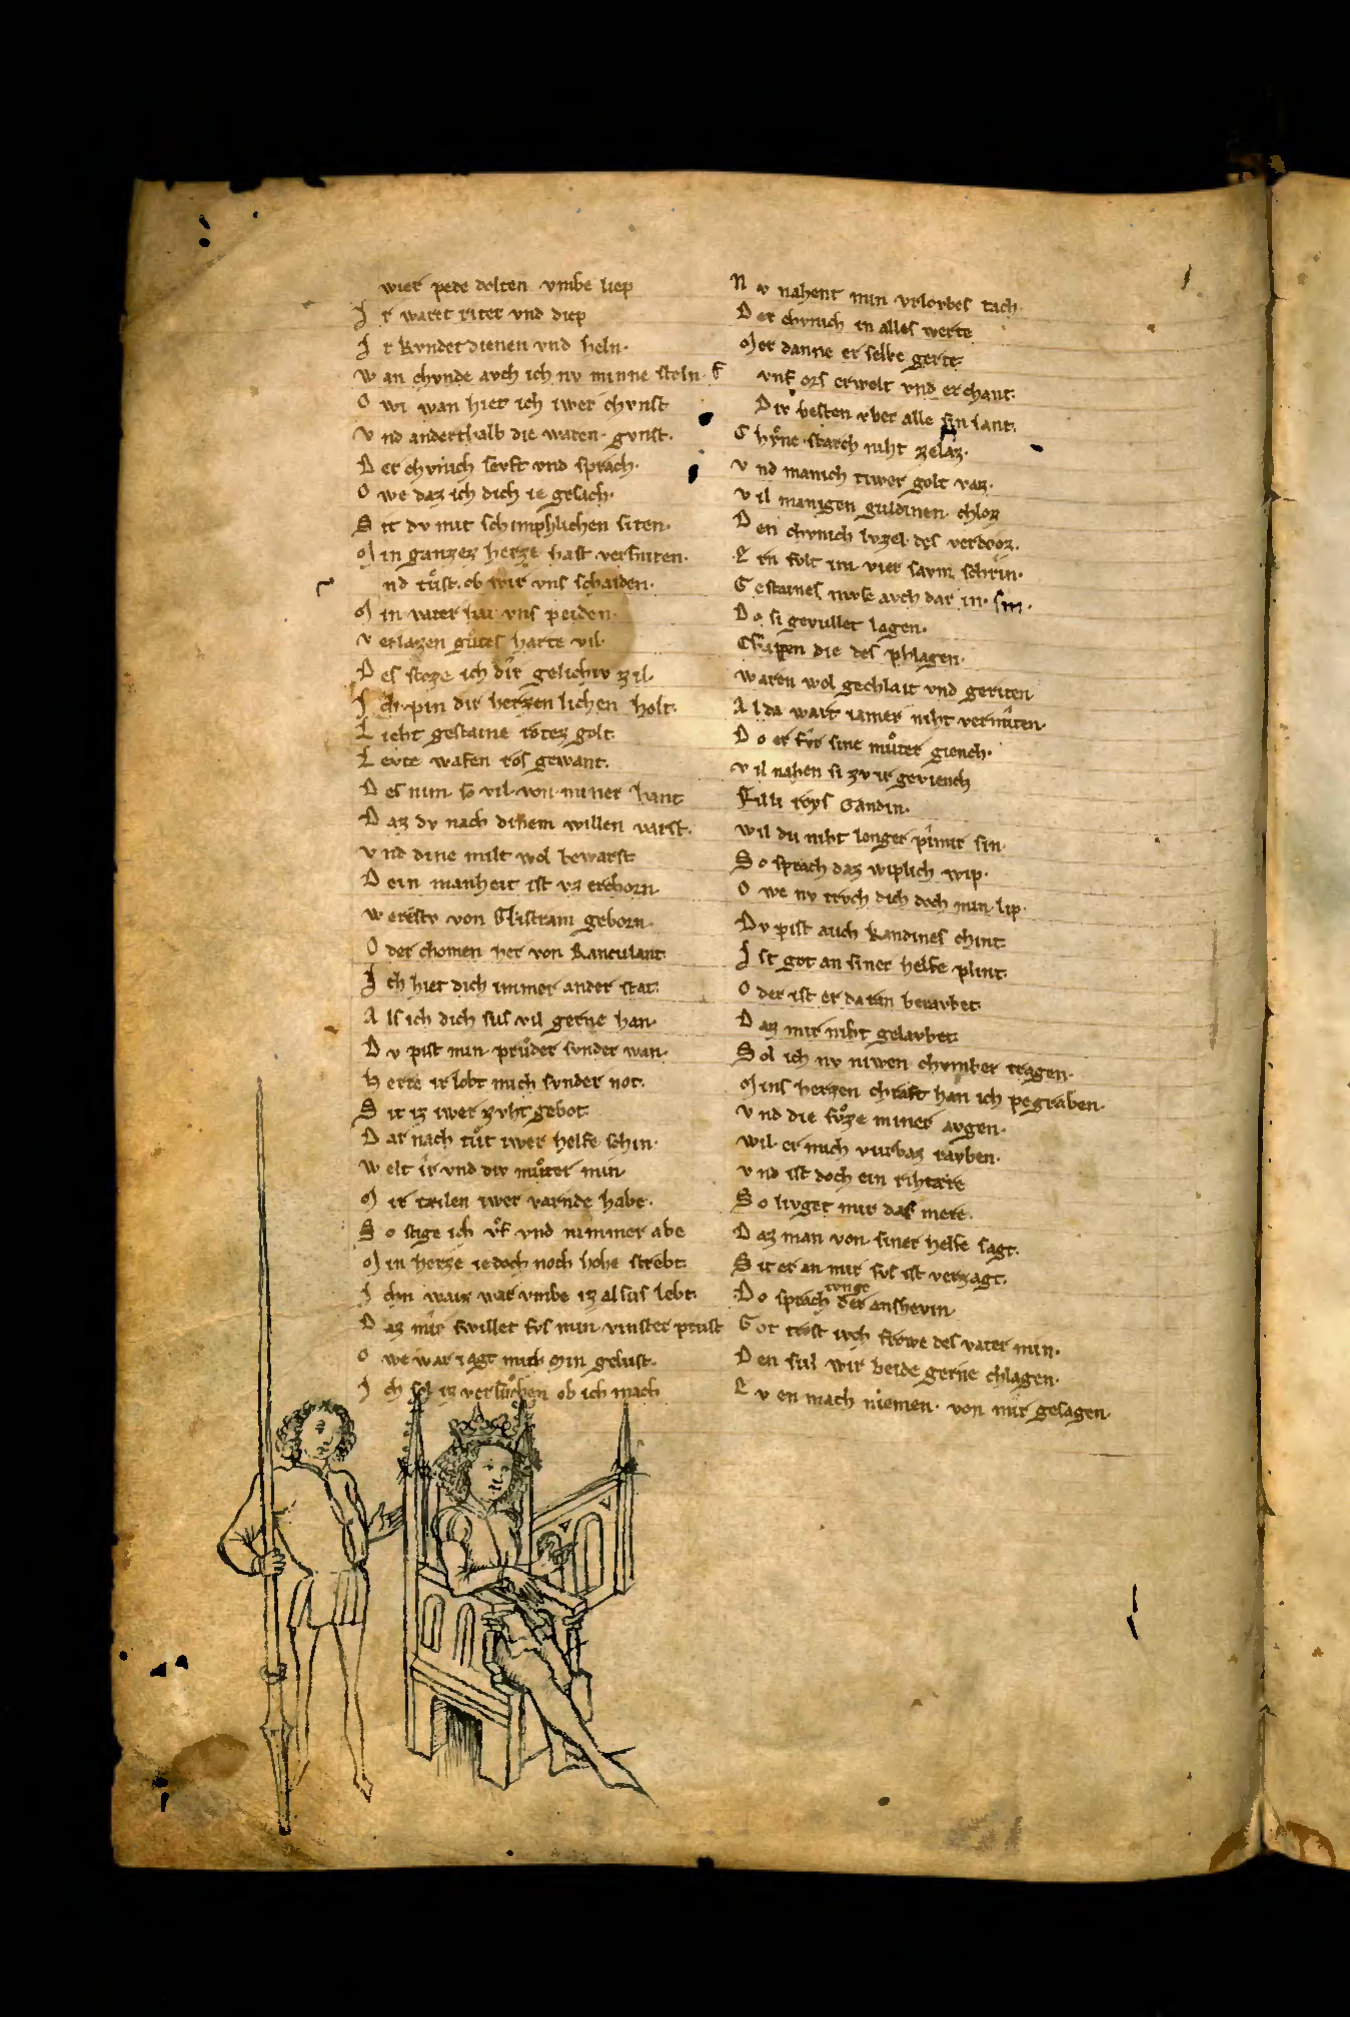 wier pede dolten vmbe liep
I r waret riter vnd diep
I r kvndet dienen vnd heln·
W an chvnde avch ich nv minne steln·
O wi wan hiet ich iwer chvnst
V nd anderthalb die waren gvnst·
D er chvnich sevft vnd sprach·
O we daz ich dich ie gesach·
S it dv mit schimphlichen siten·
M in ganzez herze hast versniten·
nd tuͦst· ob wir vns schaiden·
M in vater hat vns peiden·
V erlazen guͦtes harte vil·
D es stoze ich dir gelichiv zil·
I ch pin dir herzenlichen holt·
L ieht gestaine rotez golt·
L evte wafen ros gewant·
D es nim so vil von miner hant
D az dv nach dinem willen varst·
V nd dine milt wol bewarst
D ein manheit ist vz erchorn·
W erestv von Glistram geborn·
O der chomen her von Ranculant
I ch hiet dich immer ander stat·
A ls ich dich sus vil gerne han·
D v pist min pruͦder svnder wan·
H erre ir lobt mich svnder not·
S it iz iwer zvht gebot·
D ar nach tuͦt iwer helfe schin·
W elt ir vnd div muͦter min
M ir tailen iwer varnde habe·
S o stige ich vf vnd nimmer abe
M in herze iedoch noch hohe strebt·
I chn waiz war vmbe iz alsus lebt·
D az mir swillet svs min vinster prust
O we war iagt mich min gelust·
I ch sol iz versuͦchen ob ich mach
N v nahent min vrlovbes tach·
D er chvnich in alles werte
M er danne er selbe gerte·
vnf ors erwelt vnd erchant·
Dir besten vber alle sin lant·
C hvͦne starch niht zelaz·
V nd manich tiwer golt vaz·
V il manigen guldinen chloz
D en chvnich lvzel des verdroz·
E rn fvlt im vier savm schrin·
G estaines mvse avch dar in· sin·
D o si gevullet lagen·
Chnappen die des phlagen·
Waren wol gechlait vnd geriten
A lda wart iamer niht vermiten·
D o er fvr sine muͦter giench·
V il nahen si zv ir geviench
Filli roys Gandin·
Wil du niht lenger pi mir sin·
S o sprach daz wiplich wip·
O we nv trvch dich doch min lip·
Dv pist auch Kandines chint
I st got an siner helfe plint·
O der ist er dar in betavbet
D az mir niht gelavbet
S ol ich nv niwen chvmber tragen·
M ins herzen chraft han ich pegraben·
V nd die svͦze miner avgen·
Wil er mich vurbaz rayben·
V nd ist doch ein rihtære
S o livget mir das mere·
D az man von siner helfe sagt·
S it er an mir svs ist verzagt·
D o sprach der iunge anshevin
G ot trost ivch frowe des vater min·
D en sul wir beide gerne chlagen·
E v en mach niemen· von mir gesagen·